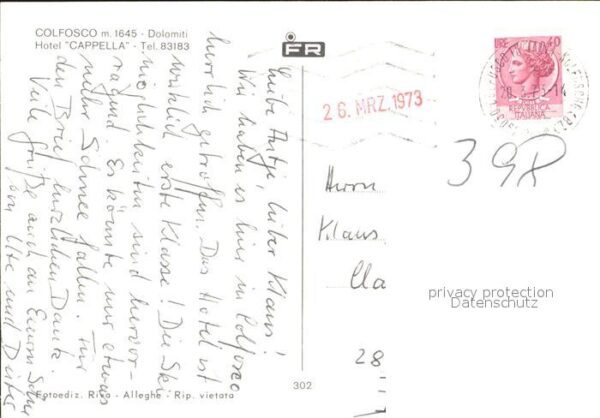 COLFOSCO m. 1645 - Dolomiti
Hotel "CAPPELLA" - Tel. 83183
FR
LIRE 40
REPVBBLICA
ITALIANA
26. MRZ. 1973
398
Liebe Antje, lieber Klaus!
Wir haben es hier in Colfosco
herrlich getroffen. Das Hotel ist
wirklich erste Klasse! Die Ski
möglichkeiten sind hervor-
ragend. Es könnte nur etwas
mehr Schnee fallen. Für
den Brief herzlichen Dank.
Viele Grüße auch an Euren
von Ute und Dieter
Herrn
Klaus
Cla
28
privacy protection
Datenschutz
302
Fotoediz. Riva - Alleghe - Rip. vietata